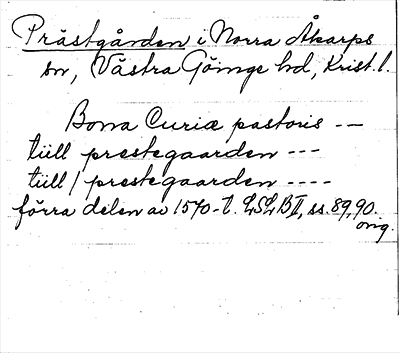 Prästgården i Norra Åkarps
sn, Västra Göinge hd, Krist. l.
Bona Curiæ pastoris --
tiill prestegaarden ---
tiill / prestegaarden ----
förra delen av 1570-t. LSLB II, ss. 89, 90.
orig.